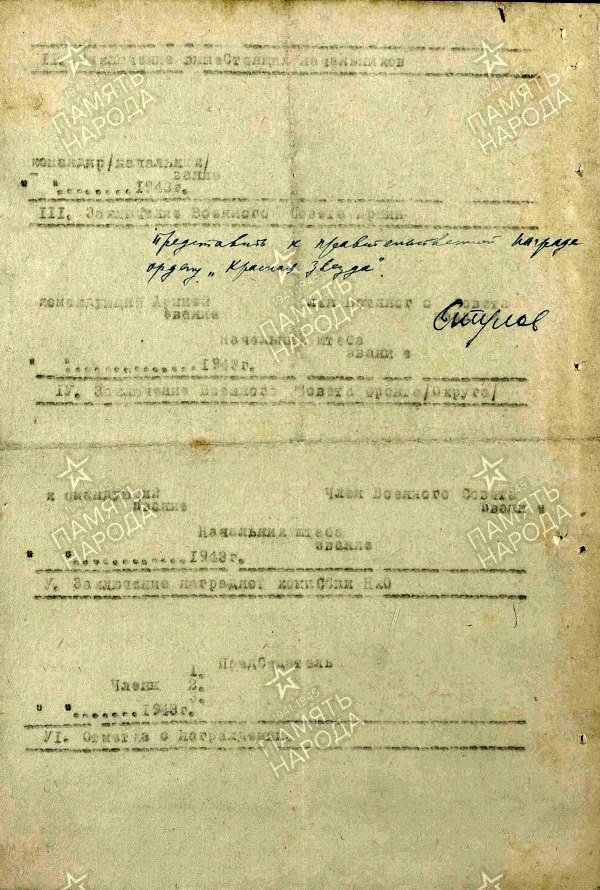 II. Заключение вышестоящих начальников
командир/начальник/
звание
" " ........1943г.
III. Заключение Военного Совета Армии
Представить к правительственной награде
ордену „Красная Звезда".
командующий Армией Член Военного Совета
звание
Начальник штаба
звание
" " ............1943г.
IУ. Заключение Военного Совета Фронта/Округа/
командующий Член Военного Совета
звание звание
Начальник штаба
звание
" " ............1943г.
У. Заключение наградной комиссии НКО
Председатель
1.
Члены 2.
" " ........1943г.
УI. Отметка о награждении
ПАМЯТЬ
НАРОДА